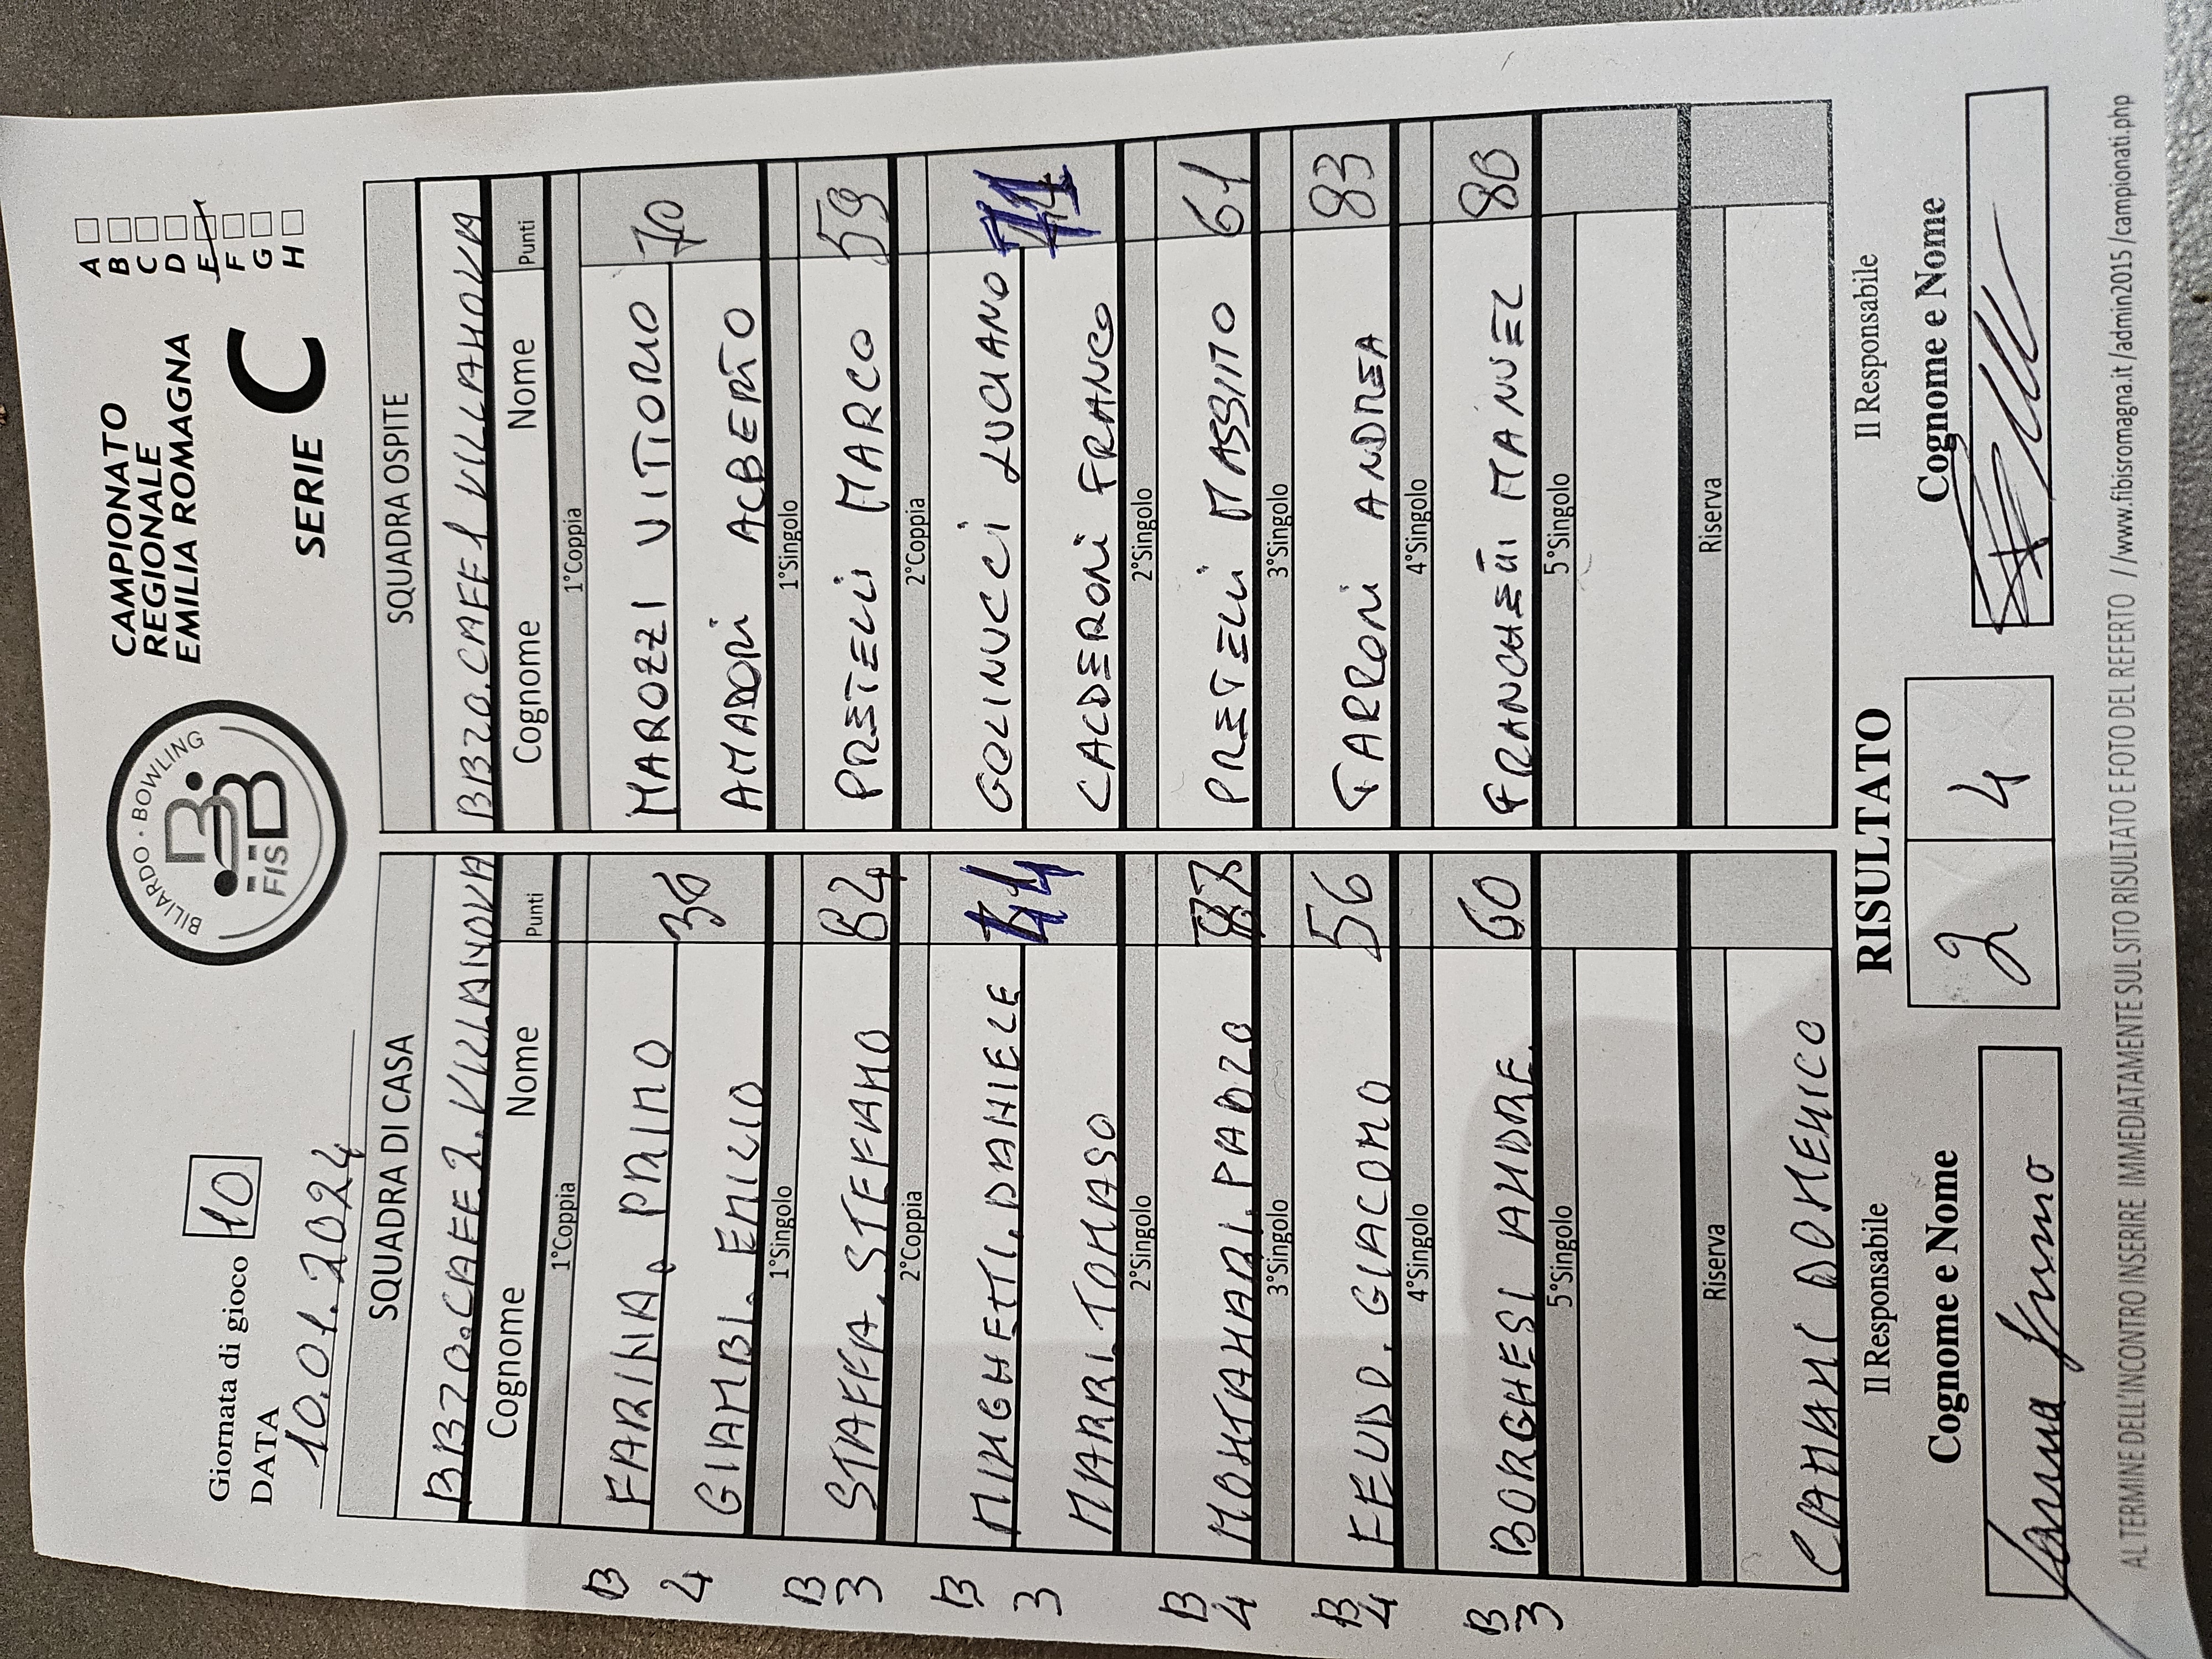 Giornata di gioco 10
DATA
10.01.2024
BILIARDO · BOWLING
FISBB
CAMPIONATO
REGIONALE
EMILIA ROMAGNA
SERIE C
A
B
C
D
E
F
G
H
SQUADRA DI CASA SQUADRA OSPITE
BBZO.CAFE 2.VILLANOVA BBZO.CAFE 1 VILLANOVA
Cognome Nome Punti Cognome Nome Punti
1°Coppia 1°Coppia
B FARINA. PRIMO MAROZZI VITTORIO
4 36 70
GIAMBI. EMILIO AMADORI ALBERTO
1°Singolo 1°Singolo
B 3 STAFFA. STEFANO 82 PRETELLI MARCO 59
2°Coppia 2°Coppia
B MINGHETTI. DANIELE GOLINUCCI LUCIANO
3 MARRI. TOMASO CALDERONI FRANCO
2°Singolo 2°Singolo
B 4 MONTANARI. PAOLO PRETELLI MASSIMO 61
3°Singolo 3°Singolo
B 4 FEUDO. GIACOMO 56 TARRONI ANDREA 83
4°Singolo 4°Singolo
B 3 BORGHESI ANDREA 60 FRANCHETTI MANUEL 80
5°Singolo 5°Singolo
Riserva Riserva
CAMANI DOMENICO
Il Responsabile RISULTATO Il Responsabile
Cognome e Nome 2 4 Cognome e Nome
AL TERMINE DELL'INCONTRO INSERIRE IMMEDIATAMENTE SUL SITO RISULTATO E FOTO DEL REFERTO //www.fibisromagna.it/admin2015/campionati.php